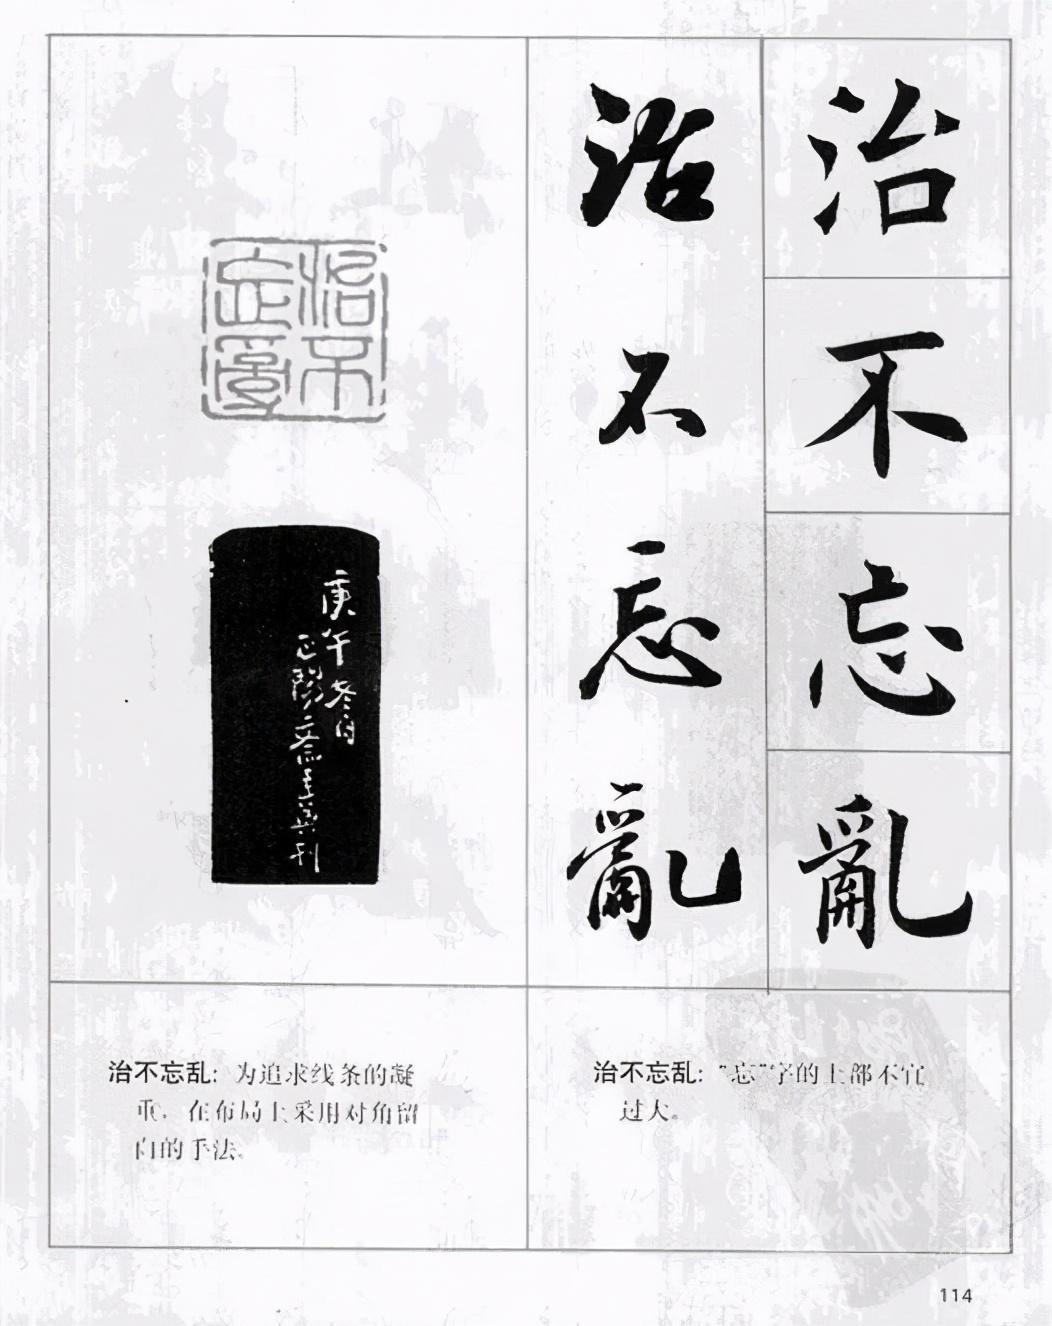 治不忘亂
治不忘亂
治不忘亂
庚午冬月
正陽齋主
刊
治不忘乱：为追求线条的凝
重，在布局上采用对角留
白的手法。
治不忘乱：“忘”字的上部不宜
过大。
114